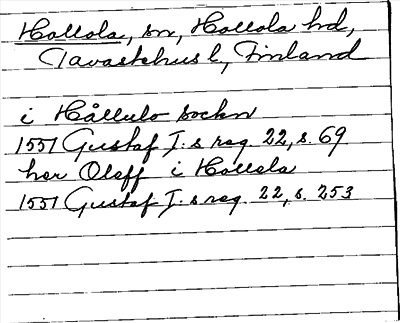 Hollola, sn, Hollola hd,
Tavastehus l, Finland
i Hållulo sockn
1551 Gustaf I:s reg. 22, s. 69
her Oleff i Hollola
1551 Gustaf I:s reg. 22, s. 253